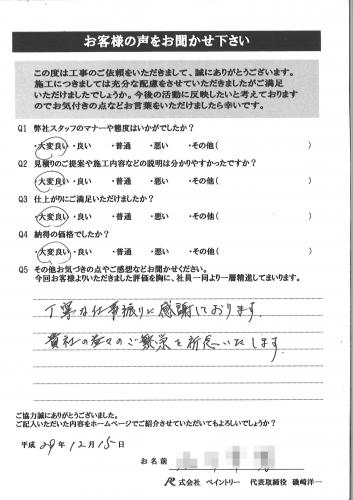 お客様の声をお聞かせ下さい
この度は工事のご依頼をいただきまして、誠にありがとうございます。
施工につきましては充分な配慮をさせていただきましたがご満足
いただけましたでしょうか。今後の活動に反映したいと考えております
のでお気付きの点などお言葉をいただけましたら幸いです。
Q1 弊社スタッフのマナーや態度はいかがでしたか?
・大変良い ・良い ・普通 ・悪い ・その他( )
Q2 見積りのご提案や施工内容などの説明は分かりやすかったですか?
・大変良い ・良い ・普通 ・悪い ・その他( )
Q3 仕上がりにご満足いただけましたか?
・大変良い ・良い ・普通 ・悪い ・その他( )
Q4 納得の価格でしたか?
・大変良い ・良い ・普通 ・悪い ・その他( )
Q5 その他お気づきの点やご感想などお聞かせください。
今回お客様よりいただきました評価を胸に、社員一同より一層精進してまいります。
丁寧な仕事振りに感謝しております。
貴社の益々のご繁栄を祈念いたします。
ご協力誠にありがとうございました。
ご記入いただいた内容をホームページでご紹介させていただいてもよろしいでしょうか?
平成 29年 12月 15日
お名前
株式会社 ペイントリー 代表取締役 磯崎洋一